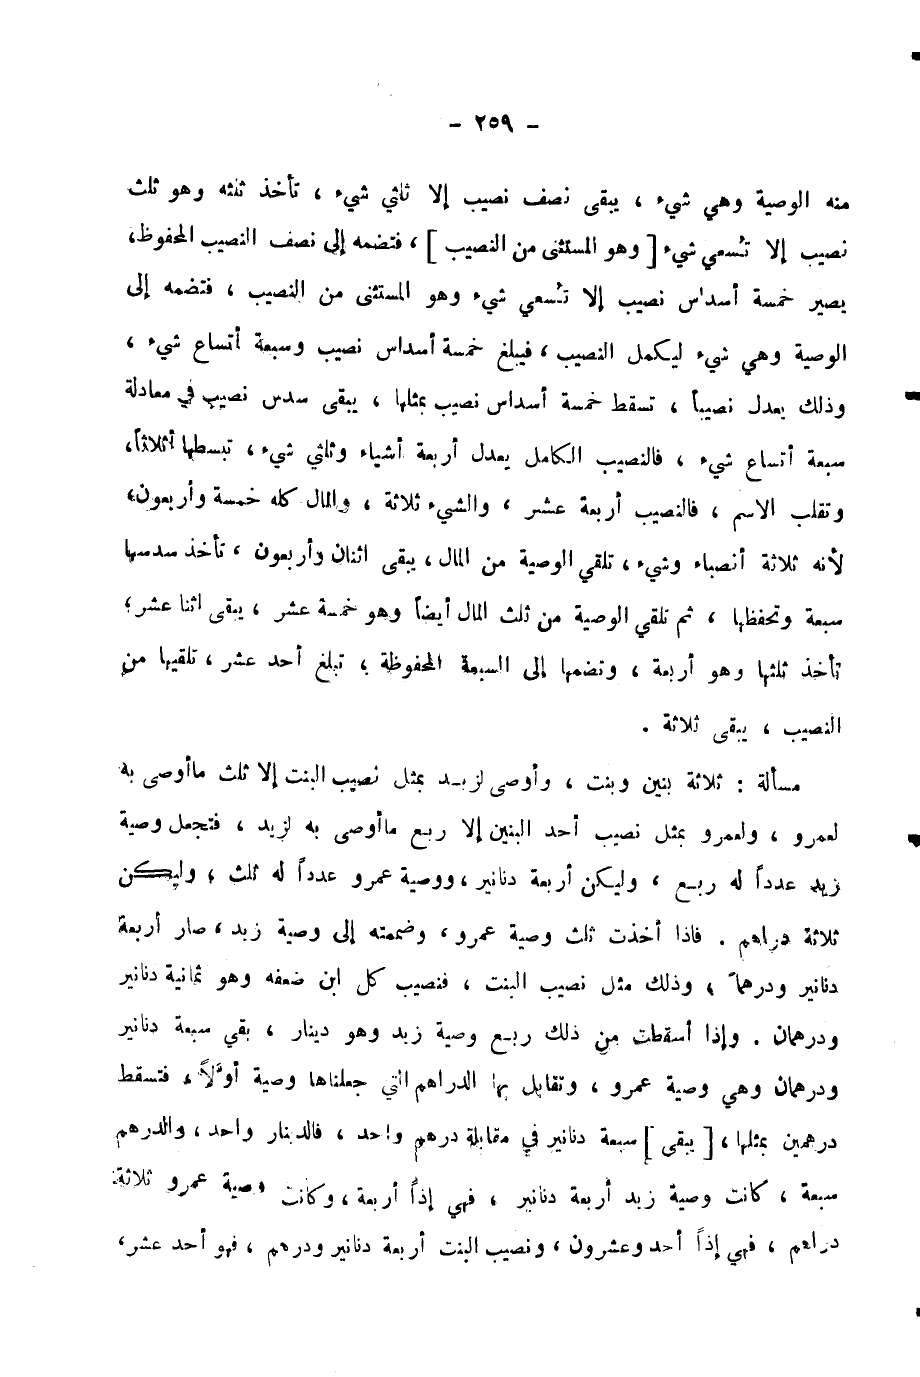 - ٢٥٩ -
منه الوصية وهي شيء ، يبقى نصف نصيب إلا ثلثي شيء ، تأخذ ثلثه وهو ثلث
نصيب إلا تُسعي شيء [ وهو المستثنى من النصيب ] ، فتضمه إلى نصف النصيب المحفوظ،
يصير خمسة أسداس نصيب إلا تُسعي شيء وهو المستثنى من النصيب ، فتضمه إلى
الوصية وهي شيء ليكمل النصيب ، فيبلغ خمسة أسداس نصيب وسبعة أتساع شيء ،
وذلك يعدل نصيباً ، تسقط خمسة أسداس نصيب بمثلها ، يبقى سدس نصيب في معادلة
سبعة أتساع شيء ، فالنصيب الكامل يعدل أربعة أشياء وثلثي شيء ، تبسطها أثلاثاً،
وتقلب الاسم ، فالنصيب أربعة عشر ، والشيء ثلاثة ، والمال كله خمسة وأربعون،
لأنه ثلاثة أنصباء وشيء ، تلقي الوصية من المال ، يبقى اثنان وأربعون ، تأخذ سدسها
سبعة وتحفظها ، ثم تلقي الوصية من ثلث المال أيضاً وهو خمسة عشر ، يبقى اثنا عشر ؛
تأخذ ثلثها وهو أربعة ، وتضمها إلى السبعة المحفوظة ، تبلغ أحد عشر ، تلقيها من
النصيب ، يبقى ثلاثة .
مسألة : ثلاثة بنين وبنت ، وأوصى لزيد بمثل نصيب البنت إلا ثلث ماأوصى به
لعمرو ، ولعمرو بمثل نصيب أحد البنين إلا ربع ماأوصى به لزيد ، فتجعل وصية
زيد عدداً له ربع ، وليكن أربعة دنانير ، ووصية عمرو عدداً له ثلث ، وليكن
ثلاثة دراهم . فاذا أخذت ثلث وصية عمرو ، وضممته إلى وصية زيد ، صار أربعة
دنانير ودرهماً ، وذلك مثل نصيب البنت ، فنصيب كل ابن ضعفه وهو ثمانية دنانير
ودرهمان . وإذا أسقطت من ذلك ربع وصية زيد وهو دينار ، بقي سبعة دنانير
ودرهمان وهي وصية عمرو ، وتقابل بها الدراهم التي جعلناها وصية أولاً ، فتسقط
درهمين بمثلها ، [ يبقى ] سبعة دنانير في مقابلة درهم واحد ، فالدينار واحد ، والدرهم
سبعة ، كانت وصية زيد أربعة دنانير ، فهي إذاً أربعة ، وكانت وصية عمرو ثلاثة
دراهم ، فهي إذاً أحد وعشرون ، ونصيب البنت أربعة دنانير ودرهم ، فهو أحد عشر ،